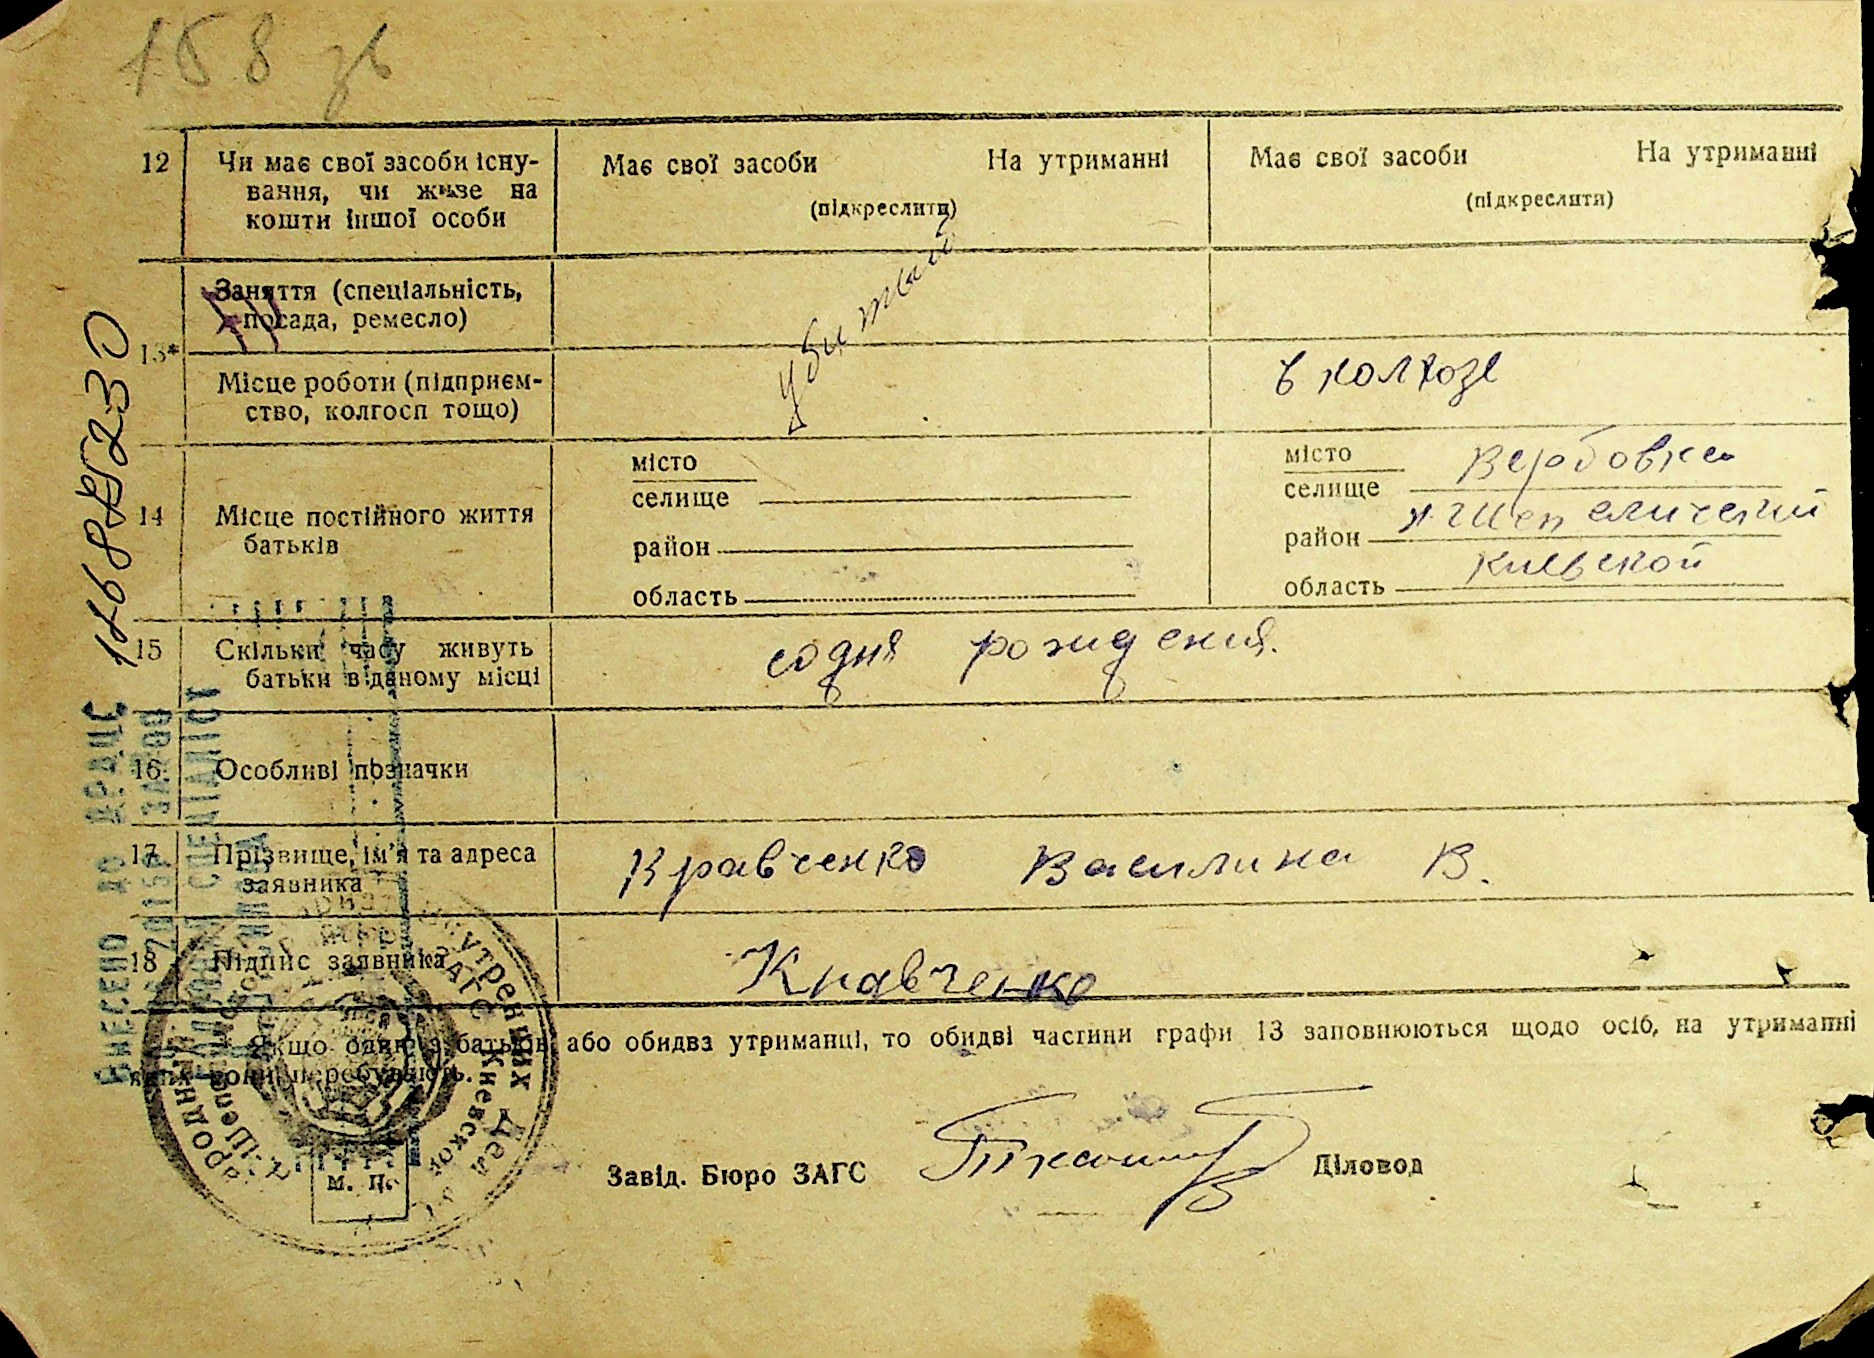 158 зв
12 Чи має свої засоби існу-
вання, чи живе на
кошти іншої особи
Має свої засоби На утриманні
(підкреслити)
Має свої засоби На утриманні
(підкреслити)
13*
Заняття (спеціальність,
посада, ремесло)
убитый
Місце роботи (підприєм-
ство, колгосп тощо)
в колхозе
14 Місце постійного життя
батьків
місто
селище
район
область
місто
селище Вербовка
район Шепеличский
область Киевской
15 Скільки часу живуть
батьки в даному місці
со дня рождения.
16 Особливі позначки
17 Прізвище, ім'я та адреса
заявника
Кравченко Василина В.
18 Підпис заявника
Кравченко
Якщо один з батьків або обидва утриманці, то обидві частини графи 13 заповнюються щодо осіб, на утриманні
яких вони перебувають.
Завід. Бюро ЗАГС
Діловод
м. п.
ВНЕСЕНО ДО ДРАЦС
ГОЛОВНИЙ СПЕЦІАЛІСТ
утренних Дел
ЗАГС Киевской